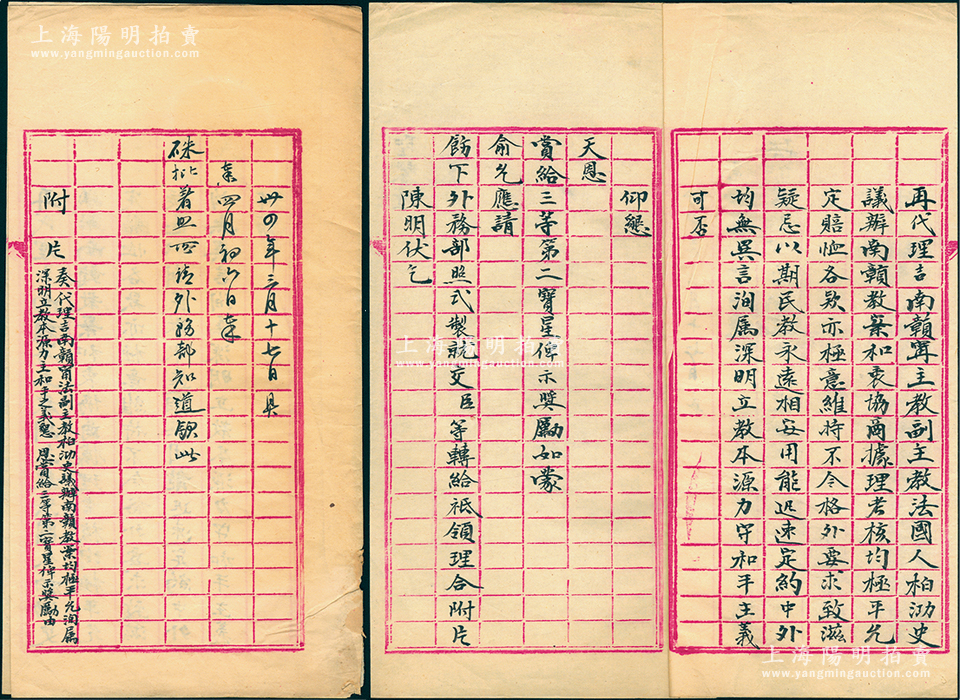 再代理吉南贛寧主教副主教法國人柏泐史
議辦南贛教案和衷協商據理考核均極平允
定賠恤各款亦極意維持不令格外要求致滋
疑忌以期民教永遠相安用能迅速定約中外
均無異言洵属深明立教本源力守和平主義
可否
仰懇
天恩
賞給三等第二寶星俾示奬勵如蒙
俞允應請
飭下外務部照式製就交臣等轉給祗領理合附片
陳明伏乞
卅四年三月十七日具
奉四月初六日奉
硃批著照所請外務部知道欽此
附片
奏代理吉南贛甯法副主教柏泐史議辦南贛教案均極平允洵属
深明立教本源力主和平之義懇 恩賞給三等第二寶星俾示奬勵由
上海陽明拍賣
www.yangmingauction.com
上海陽明拍賣
www.yangmingauction.com
上海陽明拍賣
www.yangmingauction.com